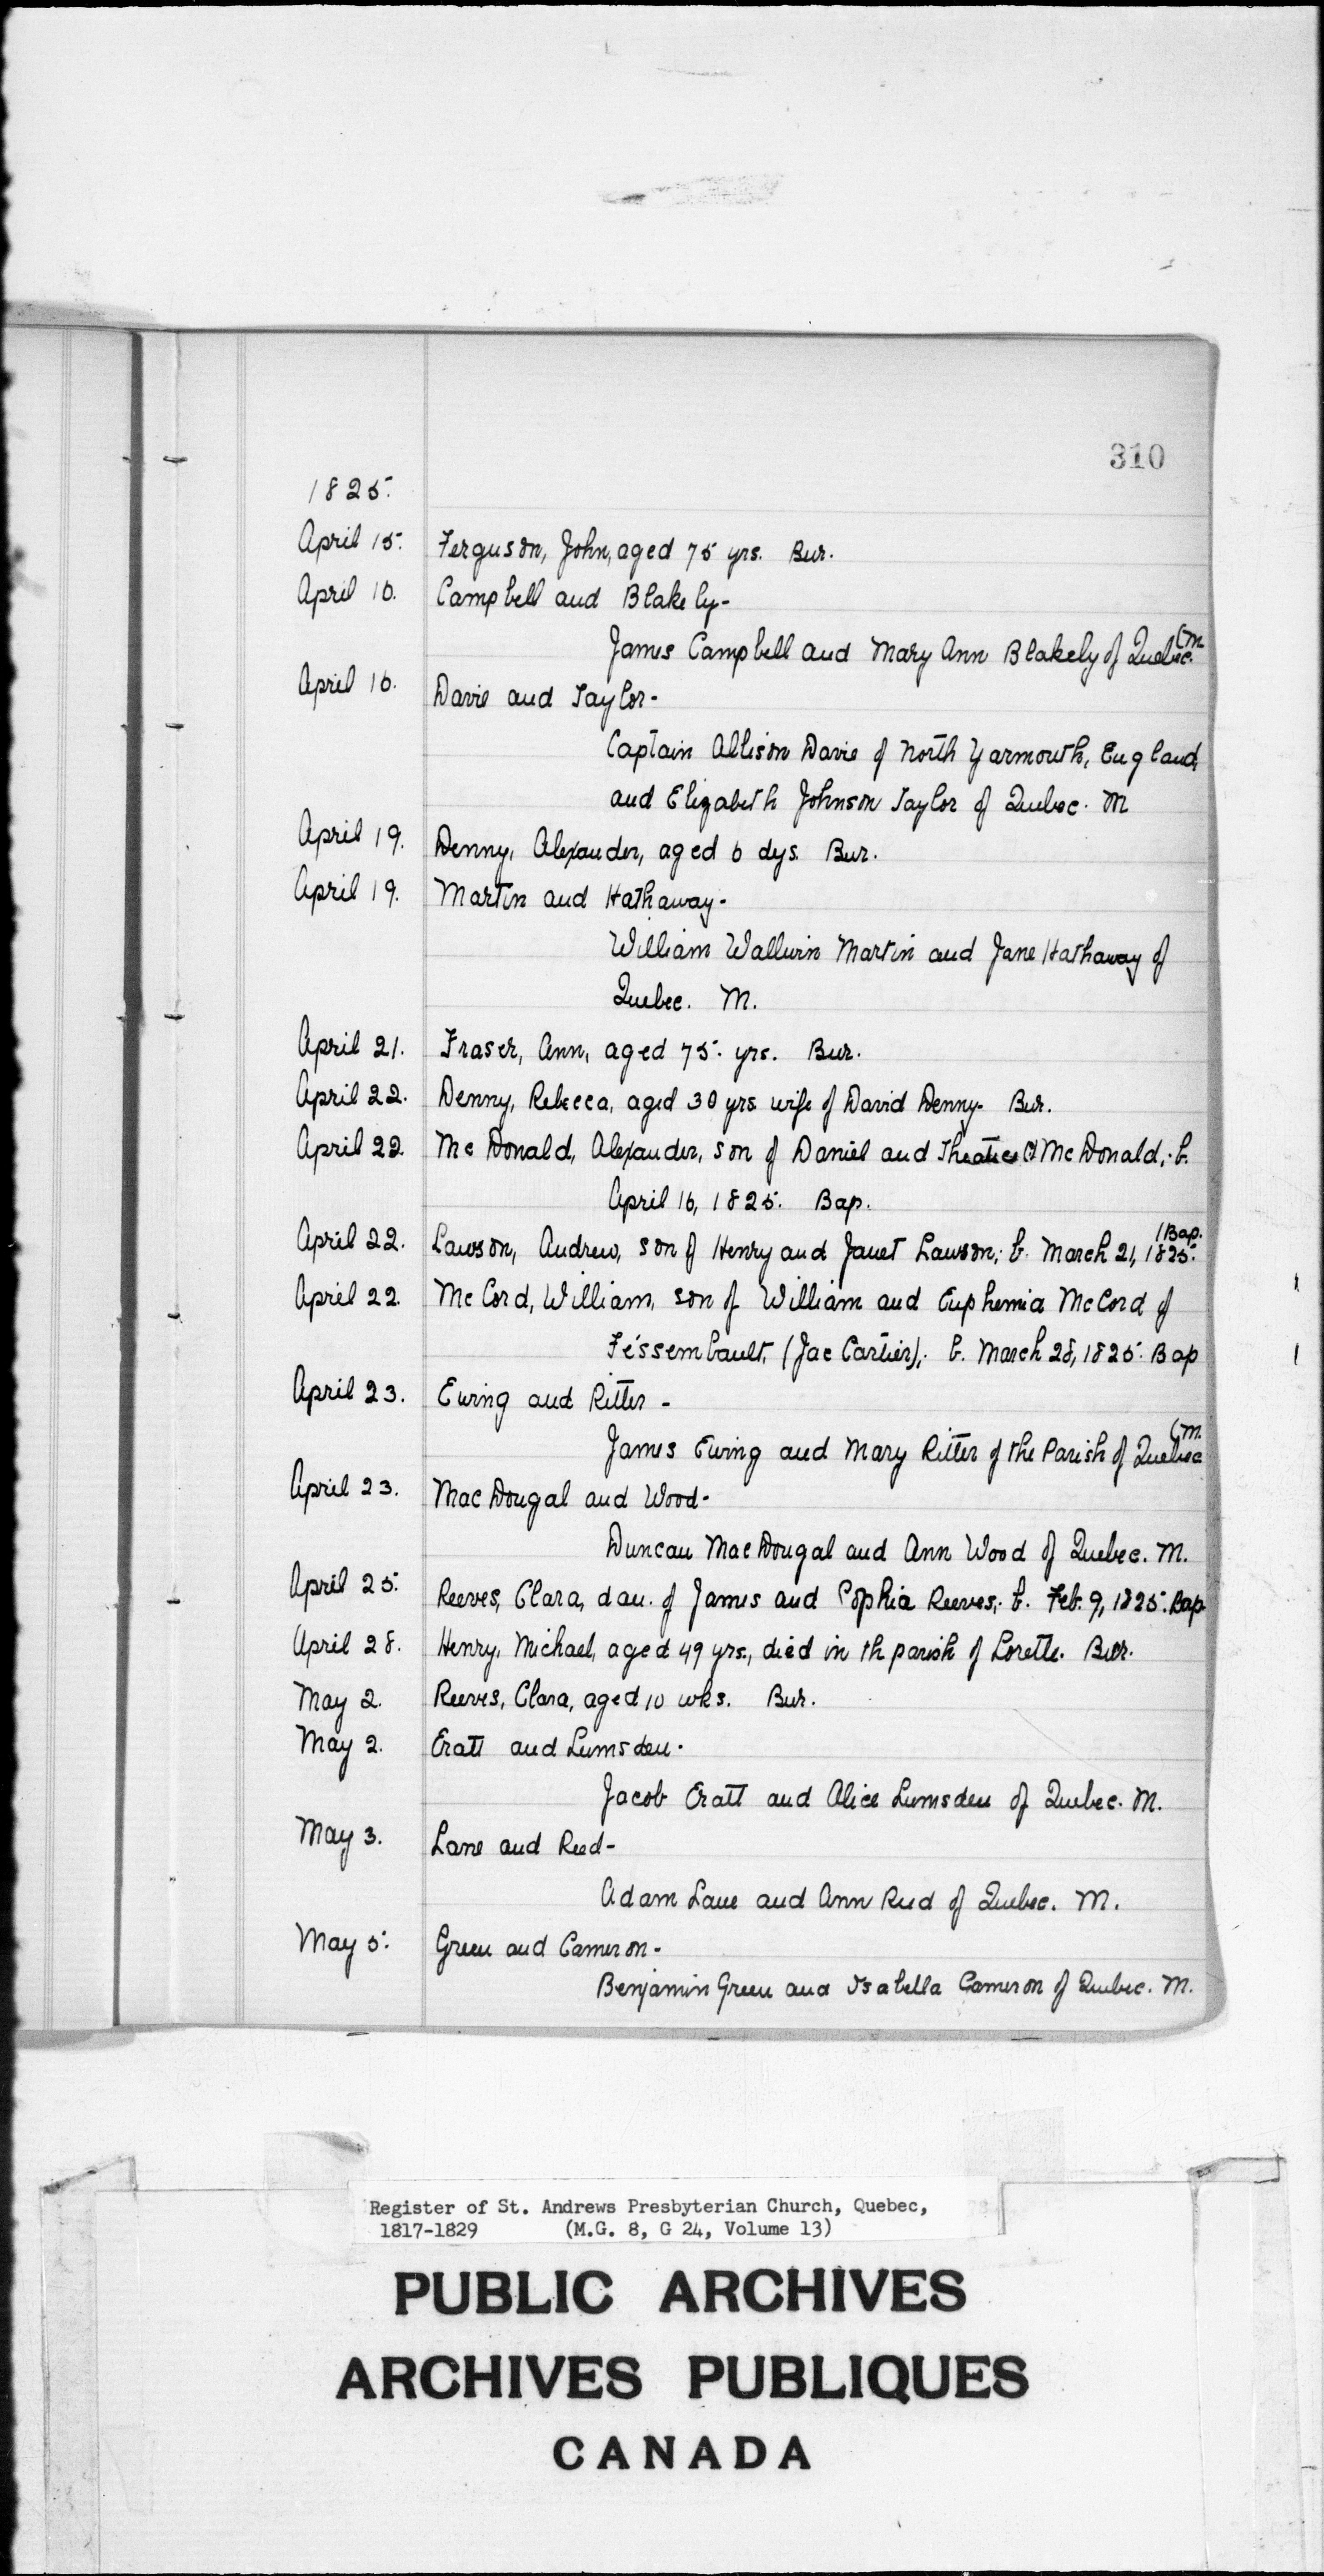 310
1825.
April 15. Ferguson, John, aged 75 yrs. Bur.
April 16. Campbell and Blakely-
(M.
James Campbell and Mary Ann Blakely of Quebec.
April 16. Davie and Taylor-
Captain Allison Davie of North Yarmouth, England,
and Elizabeth Johnson Taylor of Quebec. M
April 19. Denny, Alexander, aged 6 dys. Bur.
April 19. Martin and Hathaway-
William Wallwin Martin and Jane Hathaway of
Quebec. M.
April 21. Fraser, Ann, aged 75. yrs. Bur.
April 22. Denny, Rebecca, aged 30 yrs wife of David Denny. Bur.
April 22. McDonald, Alexander, son of Daniel and McDonald; b.
April 16, 1825. Bap.
(Bap.
April 22. Lawson, Andrew, son of Henry and Janet Lawson; b. March 21, 1825.
April 22. McCord, William, son of William and Euphemia McCord of
Féssembault, (Jac Cartier); b. March 28, 1825. Bap
April 23. Ewing and Ritter-
(M.
James Ewing and Mary Ritter of the Parish of Quebec
April 23. MacDougal and Wood-
Duncan MacDougal and Ann Wood of Quebec. M.
April 25. Reeves, Clara, dau. of James and Sophia Reeves; b. Feb. 9, 1825. Bap
April 28. Henry, Michael, aged 49 yrs., died in th parish of Lorette. Bur.
May 2. Reeves, Clara, aged 10 wks. Bur.
May 2. Eratt and Lumsden.
Jacob Eratt and Alice Lumsden of Quebec. M.
May 3. Lane and Reed-
Adam Lane and Ann Reed of Quebec. M.
May 5. Green and Cameron-
Benjamin Green and Isabella Cameron of Quebec. M.
Register of St. Andrews Presbyterian Church, Quebec,
1817-1829 (M.G. 8, G 24, Volume 13)
PUBLIC ARCHIVES
ARCHIVES PUBLIQUES
CANADA